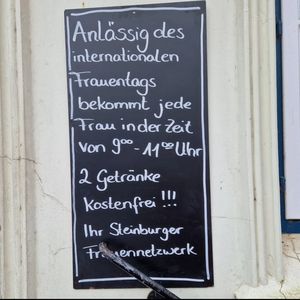 Anlässig des
internationalen
Frauentags
bekommt jede
Frau in der Zeit
von 9⁰⁰-11⁰⁰ Uhr
2 Getränke
kostenfrei!!!
Ihr Steinburger
Frauennetzwerk